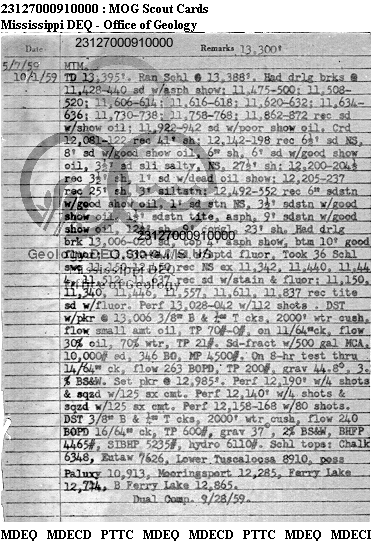 23127000910000 : MOG Scout Cards
Mississippi DEQ - Office of Geology
23127000910000
Date Remarks 13,300'
5/7/59 MTM.
10/1/59 TD 13,395'. Ran Schl @ 13,388'. Had drlg brks @
11,428-440 sd w/asph show; 11,475-500; 11,508-
520; 11,606-614; 11,616-618; 11,620-632; 11,634-
636; 11,730-738; 11,758-768; 11,862-872 rec sd
w/show oil; 11,922-942 sd w/poor show oil. Crd
12,081-122 rec 41' sh; 12,142-198 rec 6½' sd NS,
8' sd w/good show oil, 6" sh, 6' sd w/good show
oil, 3½' sd sli salty, NS, 27½' sh; 12,200-204½
rec 3½' sh, 1' sd w/dead oil show; 12,205-237
rec 25' sh, 3' siltstn; 12,492-552 rec 6" sdstn
w/good show oil, 1' sd stn NS, 3½' sdstn w/good
show oil, 1½' sdstn tite, asph, 9' sdstn w/good
show oil, 23' sh. Had drlg
23127000910000
brk 13,006-020 sd, top 4' asph show, btm 10' good
fluor Took 36 Schl
Mississippi DEQ
rec NS ex 11,342, 11,440,
rec sd w/stain & fluor; 11,150,
11,340, 11,446, 11,557, 11,611, 11,837 rec tite
sd w/fluor. Perf 13,028-042 w/112 shots. DST
w/pkr @ 13,006 3/8" B & ¼" T cks, 2000' wtr cush,
flow small amt oil, TP 70#-0#, on 11/64"ck, flow
30% oil, 70% wtr, TP 21#. Sd-fract w/500 gal MCA,
10,000# sd, 346 BO, MP 4500#. On 8-hr test thru
14/64" ck, flow 263 BOPD, TP 200#, grav 44.8°,
% BS&W. Set pkr @ 12,985'. Perf 12,190' w/4 shots
& sqzd w/125 sx cmt. Perf 12,140' w/4 shots &
sqzd w/125 sx cmt. Perf 12,158-168 w/80 shots.
DST 3/8" B & ¼" T cks, 2000' wtr cush, flow 240
BOPD 16/64" ck, TP 600#, grav 37°, 2% BS&W, BHFP
4465#, SIBHP 5235#, hydro 6110#. Schl tops: Chalk
6348, Eutaw 7626, Lower Tuscaloosa 8910, poss
Paluxy 10,913, Mooringsport 12,285, Ferry Lake
12,774, B Ferry Lake 12,865.
Dual Comp. 9/28/59.
MDEQ MDECD PTTC MDEQ MDECD PTTC MDEQ MDECI